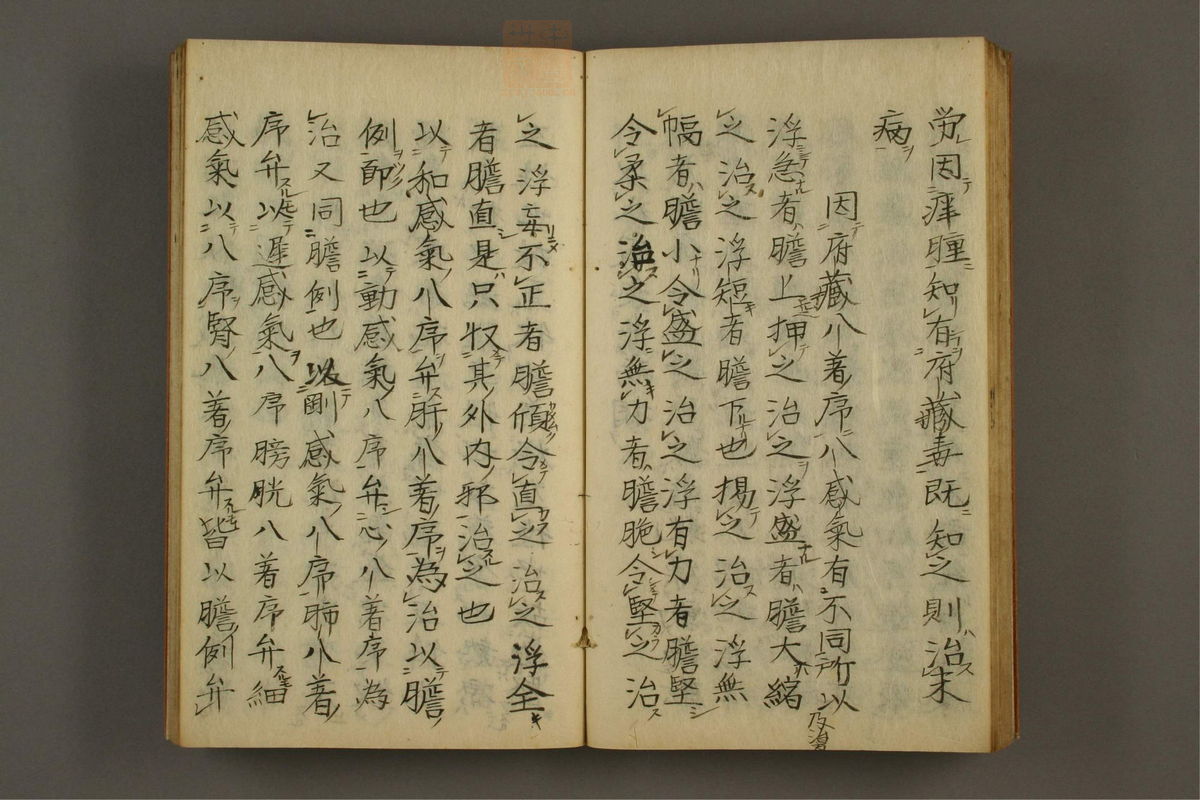 労因痒腫知有府藏毒既知之則治末
病
因府藏八著序八感氣有不同所以
浮急者膽上押之治之浮盛者膽大縮
之治之浮短者膽下也揚之治之浮無
幅者膽小令盛之治之浮有力者膽堅
令柔之治之浮無力者膽脆令堅之治
之浮弃不正者膽傾令直之治之浮全
者膽直是只収其外内邪治之也
以和感氣八序弁肝八著序為治以膽
例節也以動感氣八序弁心八著序為
治又同膽例也以剛感氣八序肺八著
序弁以遲感氣八序膀胱八著序弁細
感氣以八序腎八著序弁皆以膽例弁